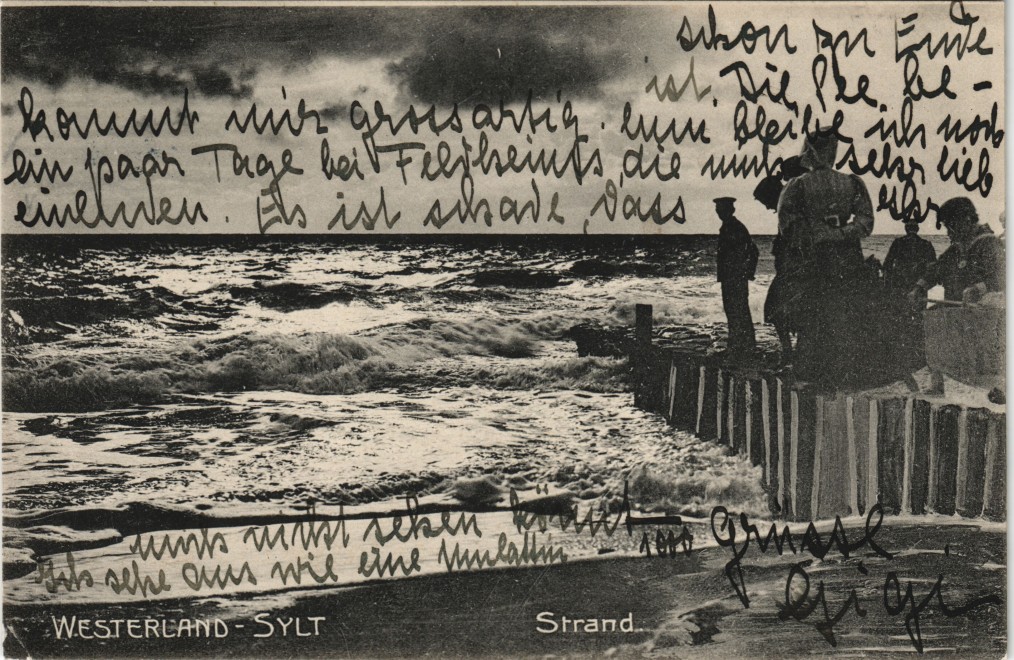 schon zu Ende
ist. Die See be-
kommt mir grossartig. nun bleibe ich noch
ein paar Tage bei Feldheim's, die mich sehr lieb
einluden. Es ist schade, dass Ihr
mich nicht sehen könnt
Ich sehe aus wie eine Mulattin
1000 Grüsse
Gigi
WESTERLAND - SYLT Strand.